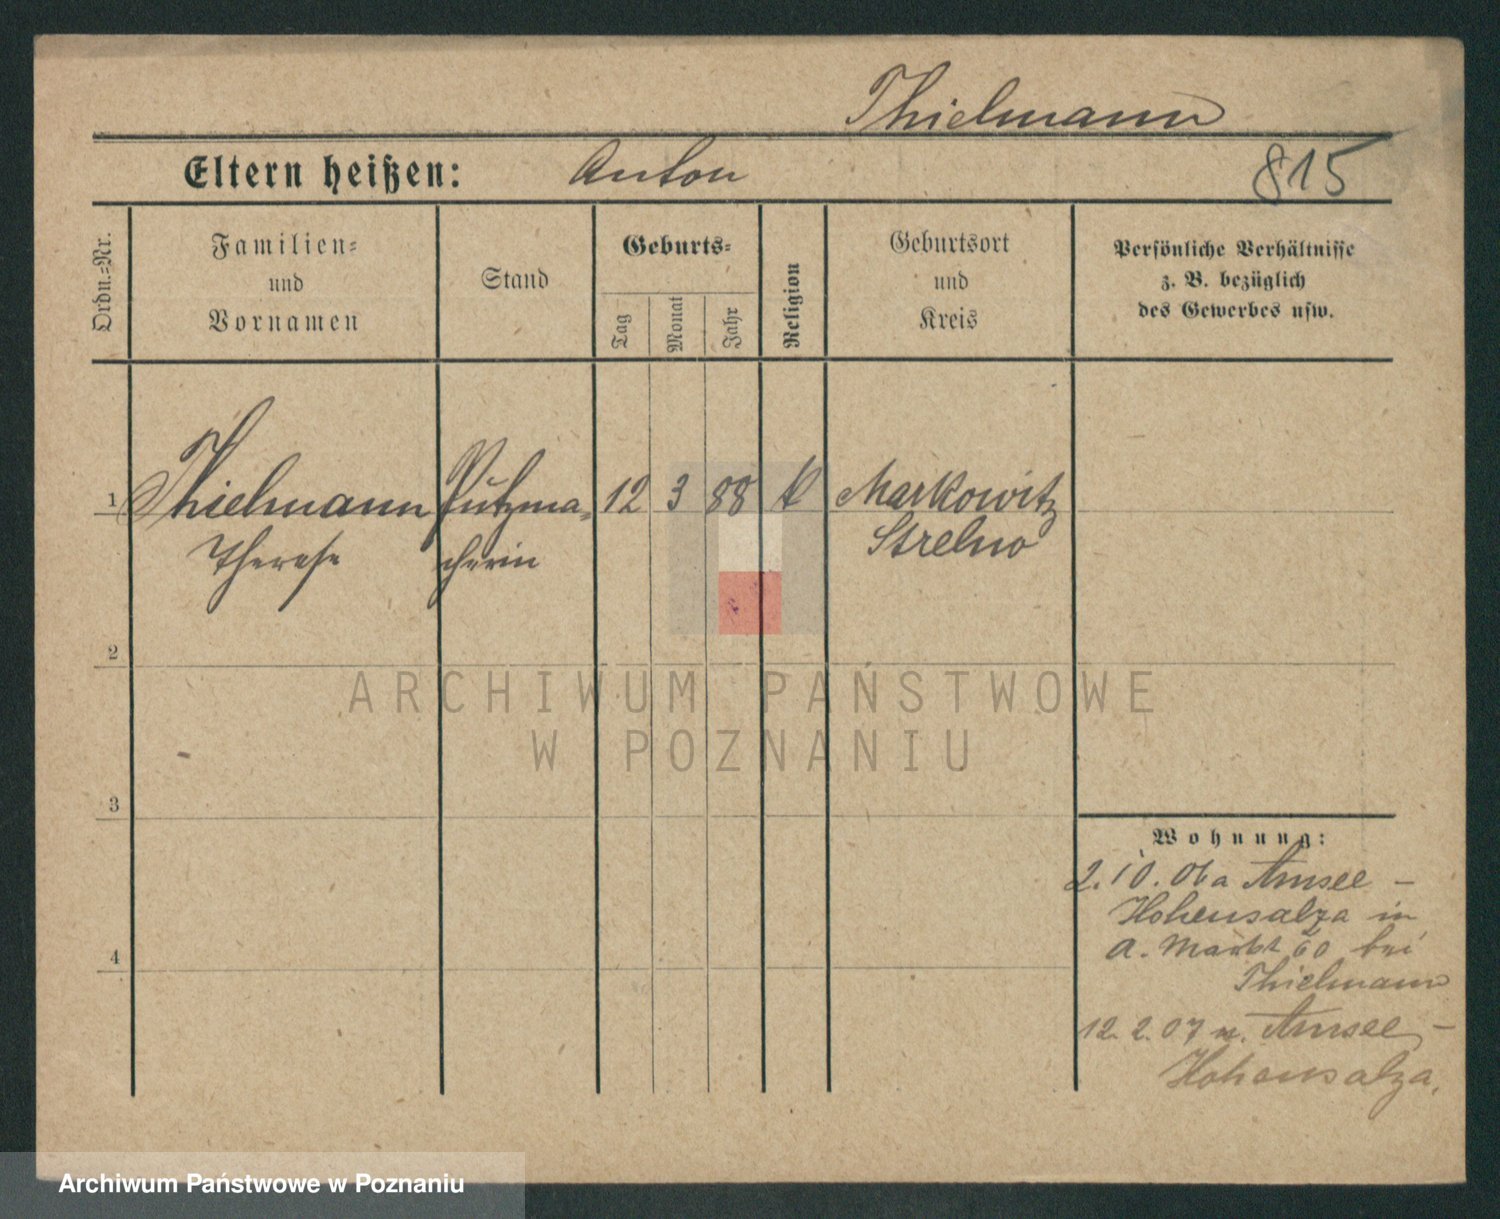 Thielmann
Eltern heißen: Anton
815
Ordn.=Nr.
Familien=
und
Vornamen
Stand
Geburts=
Tag
Monat
Jahr
Religion
Geburtsort
und
Kreis
Persönliche Verhältnisse
z. B. bezüglich
des Gewerbes usw.
1 Thielmann Putzma= 12 3 88 k Markowitz
Therese cherin Strelno
2
3
4
Wohnung:
2. 10. 06 a Amsee –
Hohensalza in
A. Markt 60 bei
Thielmann
12. 2. 07 n. Amsee –
Hohensalza.
ARCHIWUM PAŃSTWOWE
W POZNANIU
Archiwum Państwowe w Poznaniu